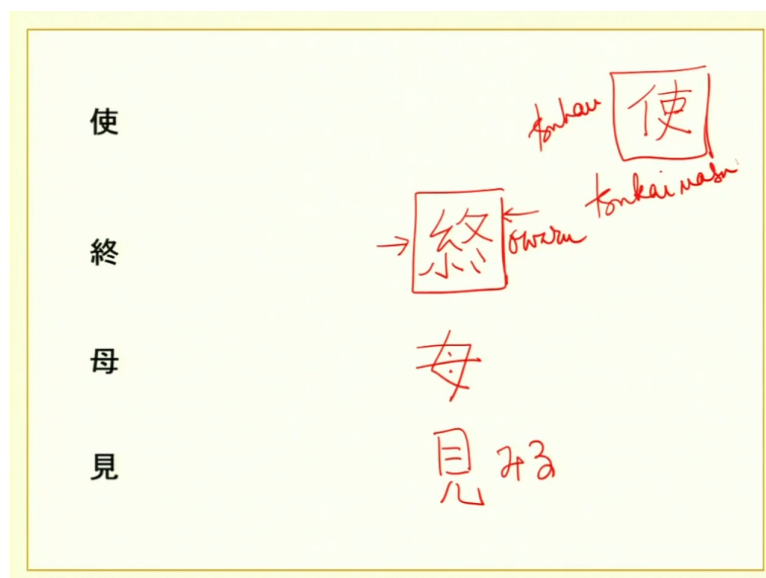 使 tsukau 使
tsukaimasu
終 → 終 ← owaru
母 母
見 見 みる